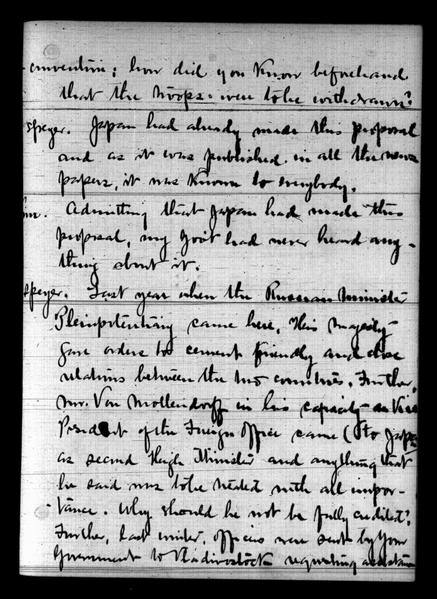 convention; how did you know beforehand
that the troops were to be withdrawn?
Speyer. Japan had already made this proposal
and as it was published in all the news
papers, it was known to everybody.
Admitting that Japan had made this
proposal, my Gov't had never heard any-
thing about it.
Speyer. Last year when the Russian Minister
Plenipotentiary came here, His Majesty
gave orders to cement friendly and close
relations between the two countries. Further,
Mr. Von Mollendorff in his capacity as Vice
President of the Foreign Office came (to Japan
as second High Minister and anything that
he said was to be treated with all impor-
tance. Why should he not be fully credited?
Further, last winter, officers were sent by your
Government to Vladivostock requesting assistance